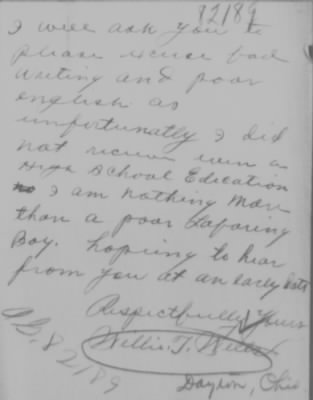 82189
I will ask you to
please excuse bad
writing and poor
english as
unfortunatly I did
not receive even a
High School Edication
I am nothing more
than a poor Laboring
Boy. hopeing to hear
from you at an early date
Respectfully Yours
Willie T.
Dayton, Ohio
82189